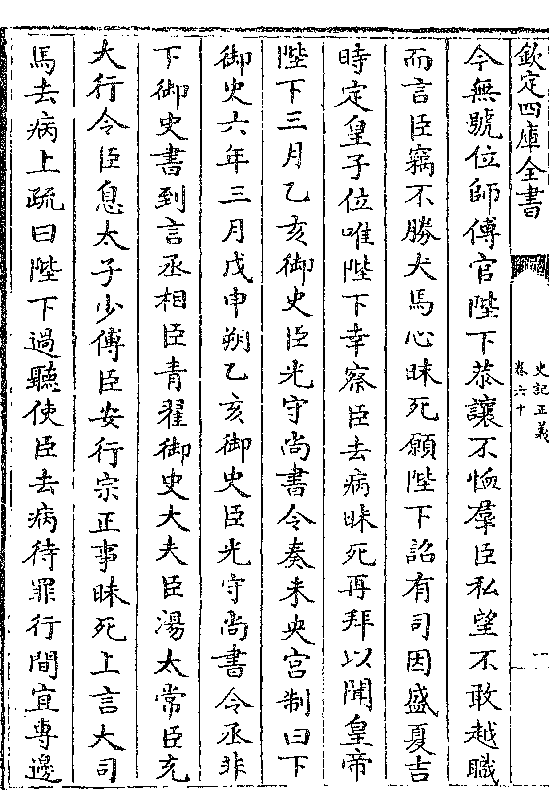 欽定四庫全書
史記正義
卷六十
今無號位師傅官陛下恭讓不恤羣臣私望不敢越職
而言臣竊不勝犬馬心昧死願陛下詔有司因盛夏吉
時定皇子位唯陛下幸察臣去病昧死再拜以聞皇帝
陛下三月乙亥御史臣光守尚書令奏未央宮制曰下
御史六年三月戊申朔乙亥御史臣光守尚書令丞非
下御史書到言丞相臣青翟御史大夫臣湯太常臣充
大行令臣息太子少傅臣安行宗正事昧死上言大司
馬去病上疏曰陛下過聽使臣去病待罪行間宜專邊